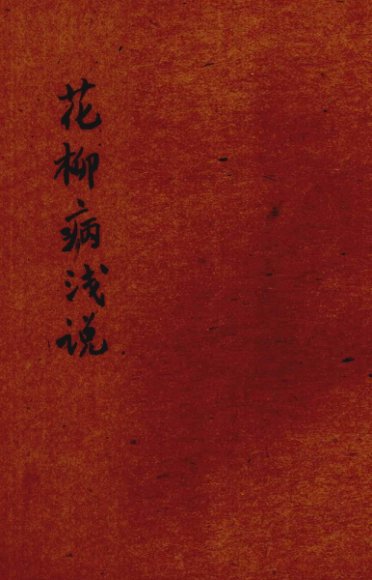 花柳病浅说